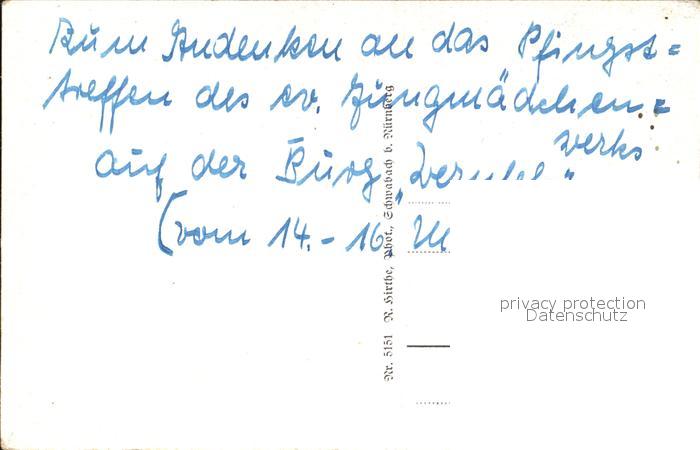 Zum Andenken an das Pfingst=
treffen des ev. Jungmädchen=
werks
auf der Burg „
(vom 14. - 16.
Nr. 5151 R. Hirthe, Phot., Schwabach b. Nürnberg
privacy protection
Datenschutz